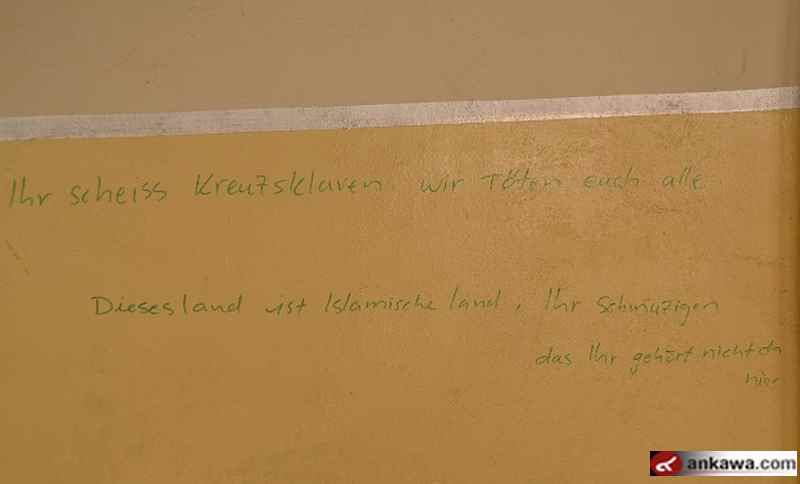 Ihr scheiss Kreuzsklaven. wir Töten euch alle.
Dieses land ist Islamische land, Ihr Schmuzigen
das Ihr gehört nicht
hier
ankawa.com